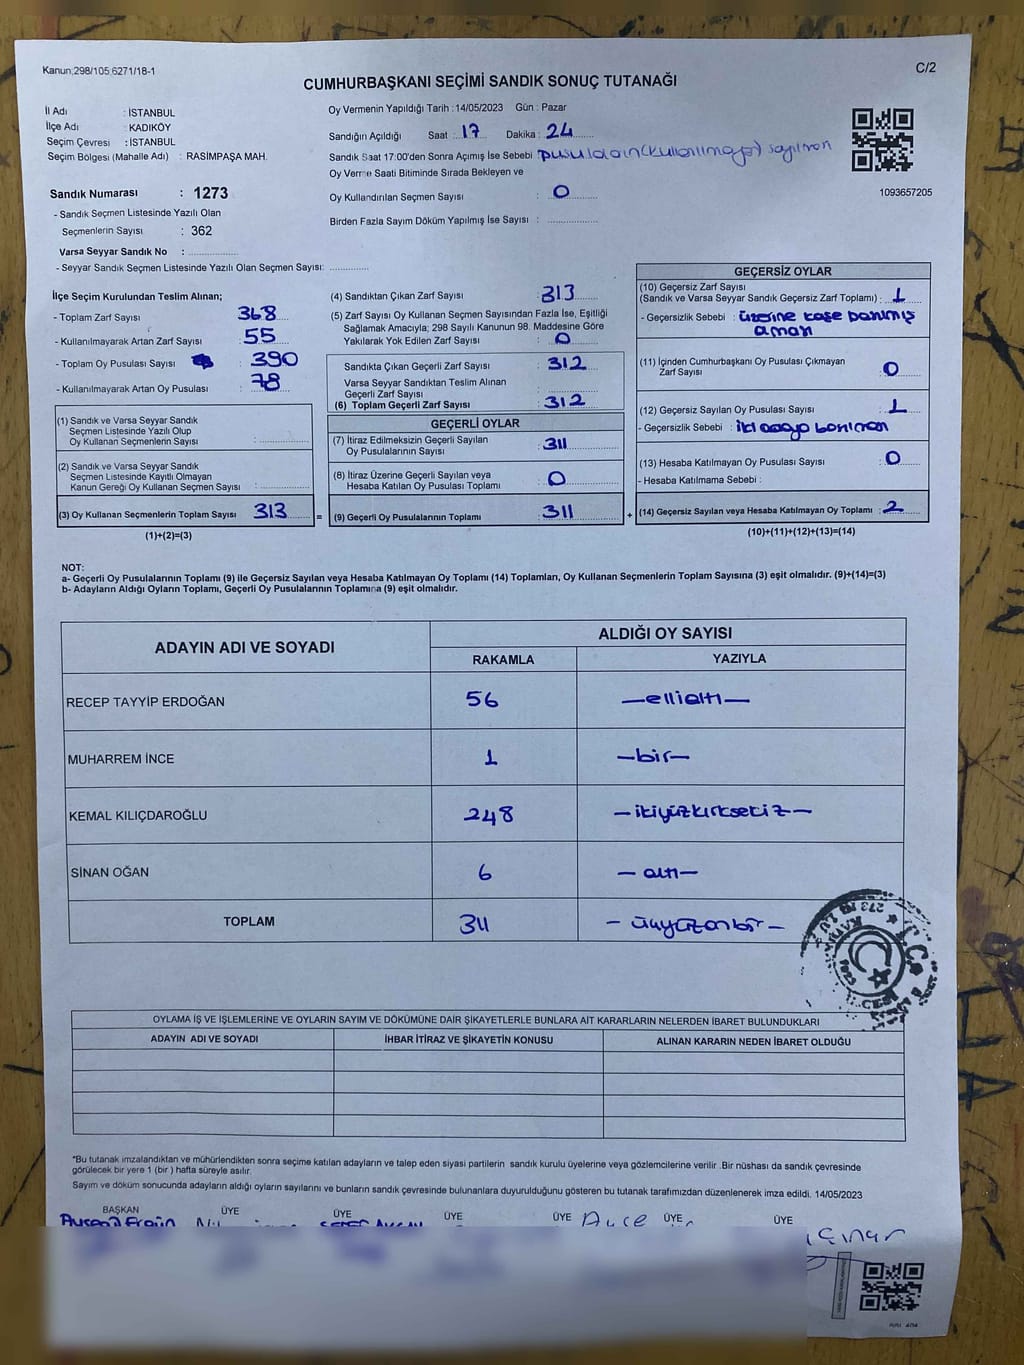 Kanun;298/105 6271/18-1
C/2
CUMHURBAŞKANI SEÇİMİ SANDIK SONUÇ TUTANAĞI
İl Adı : İSTANBUL
İlçe Adı : KADIKÖY
Seçim Çevresi : İSTANBUL
Seçim Bölgesi (Mahalle Adı) : RASİMPAŞA MAH.
Oy Vermenin Yapıldığı Tarih :14/05/2023 Gün : Pazar
Sandığın Açıldığı Saat : 17 Dakika : 24
Sandık Saat 17:00'den Sonra Açımış İse Sebebi
Oy Verme Saati Bitiminde Sırada Bekleyen ve
Oy Kullandırılan Seçmen Sayısı : 0
Birden Fazla Sayım Döküm Yapılmış İse Sayısı :
1093657205
Sandık Numarası : 1273
- Sandık Seçmen Listesinde Yazılı Olan
Seçmenlerin Sayısı : 362
Varsa Seyyar Sandık No :
- Seyyar Sandık Seçmen Listesinde Yazılı Olan Seçmen Sayısı:
İlçe Seçim Kurulundan Teslim Alınan;
- Toplam Zarf Sayısı : 368
- Kullanılmayarak Artan Zarf Sayısı : 55
- Toplam Oy Pusulası Sayısı : 390
- Kullanılmayarak Artan Oy Pusulası : 78
(1) Sandık ve Varsa Seyyar Sandık
Seçmen Listesinde Yazılı Olup
Oy Kullanan Seçmenlerin Sayısı :
(2) Sandık ve Varsa Seyyar Sandık
Seçmen Listesinde Kayıtlı Olmayan
Kanun Gereği Oy Kullanan Seçmen Sayısı :
(3) Oy Kullanan Seçmenlerin Toplam Sayısı : 313 =
(1)+(2)=(3)
(4) Sandıktan Çıkan Zarf Sayısı : 313
(5) Zarf Sayısı Oy Kullanan Seçmen Sayısından Fazla İse, Eşitliği
Sağlamak Amacıyla; 298 Sayılı Kanunun 98. Maddesine Göre
Yakılarak Yok Edilen Zarf Sayısı : 0
Sandıkta Çıkan Geçerli Zarf Sayısı : 312
Varsa Seyyar Sandıktan Teslim Alınan
Geçerli Zarf Sayısı :
(6) Toplam Geçerli Zarf Sayısı : 312
GEÇERLİ OYLAR
(7) İtiraz Edilmeksizin Geçerli Sayılan
Oy Pusulalarının Sayısı : 311
(8) İtiraz Üzerine Geçerli Sayılan veya
Hesaba Katılan Oy Pusulası Toplamı : 0
(9) Geçerli Oy Pusulalarının Toplamı : 311 +
GEÇERSİZ OYLAR
(10) Geçersiz Zarf Sayısı
(Sandık ve Varsa Seyyar Sandık Geçersiz Zarf Toplamı) : 1
- Geçersizlik Sebebi : üzerine kaşe
(11) İçinden Cumhurbaşkanı Oy Pusulası Çıkmayan
Zarf Sayısı : 0
(12) Geçersiz Sayılan Oy Pusulası Sayısı : 1
- Geçersizlik Sebebi :
(13) Hesaba Katılmayan Oy Pusulası Sayısı : 0
- Hesaba Katılmama Sebebi :
(14) Geçersiz Sayılan veya Hesaba Katılmayan Oy Toplamı : 2
(10)+(11)+(12)+(13)=(14)
NOT:
a- Geçerli Oy Pusulalarının Toplamı (9) ile Geçersiz Sayılan veya Hesaba Katılmayan Oy Toplamı (14) Toplamları, Oy Kullanan Seçmenlerin Toplam Sayısına (3) eşit olmalıdır. (9)+(14)=(3)
b- Adayların Aldığı Oyların Toplamı, Geçerli Oy Pusulalarının Toplamına (9) eşit olmalıdır.
ADAYIN ADI VE SOYADI
ALDIĞI OY SAYISI
RAKAMLA YAZIYLA
RECEP TAYYİP ERDOĞAN 56 —ellialtı—
MUHARREM İNCE 1 —bir—
KEMAL KILIÇDAROĞLU 248 —ikiyüzkırksekiz—
SİNAN OĞAN 6 —altı—
TOPLAM 311 —üçyüzonbir—
OYLAMA İŞ VE İŞLEMLERİNE VE OYLARIN SAYIM VE DÖKÜMÜNE DAİR ŞİKAYETLERLE BUNLARA AİT KARARLARIN NELERDEN İBARET BULUNDUKLARI
ADAYIN ADI VE SOYADI İHBAR İTİRAZ VE ŞİKAYETİN KONUSU ALINAN KARARIN NEDEN İBARET OLDUĞU
*Bu tutanak imzalandıktan ve mühürlendikten sonra seçime katılan adayların ve talep eden siyasi partilerin sandık kurulu üyelerine veya gözlemcilerine verilir .Bir nüshası da sandık çevresinde
görülecek bir yere 1 (bir ) hafta süreyle asılır.
Sayım ve döküm sonucunda adayların aldığı oyların sayılarını ve bunların sandık çevresinde bulunanlara duyurulduğunu gösteren bu tutanak tarafımızdan düzenlenerek imza edildi. 14/05/2023
BAŞKAN ÜYE ÜYE ÜYE ÜYE ÜYE ÜYE